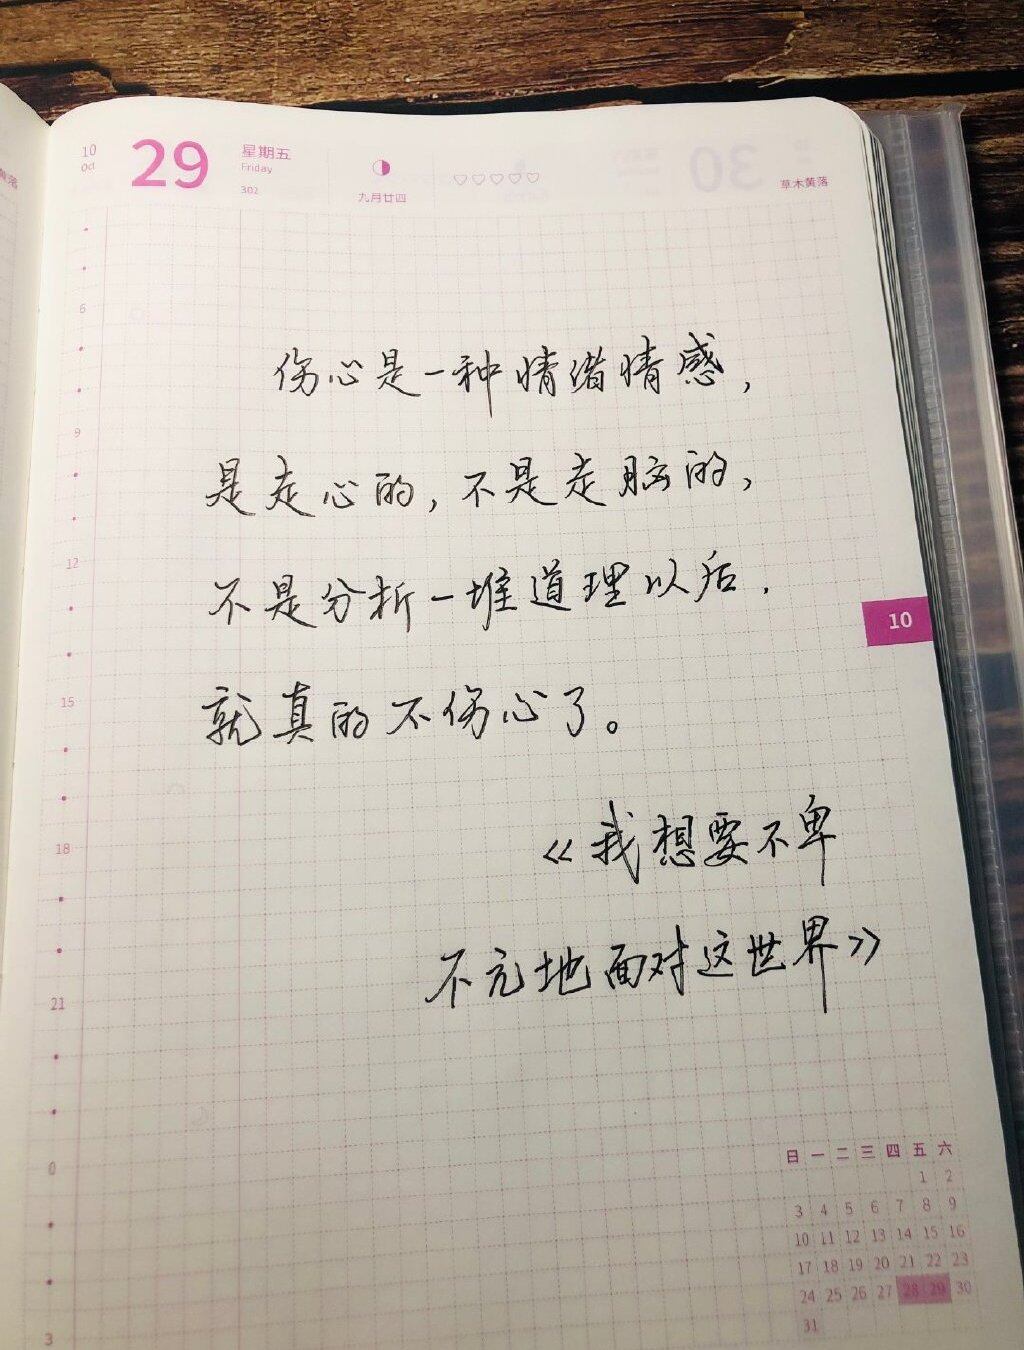 10
Oct
29
星期五
Friday
302
九月廿四
草木黄落
6
9
12
15
18
21
0
3
伤心是一种情绪情感，
是走心的，不是走脑的，
不是分析一堆道理以后，
就真的不伤心了。
《我想要不卑
不亢地面对这世界》
10
日 一 二 三 四 五 六
1 2
3 4 5 6 7 8 9
10 11 12 13 14 15 16
17 18 19 20 21 22 23
24 25 26 27 28 29 30
31